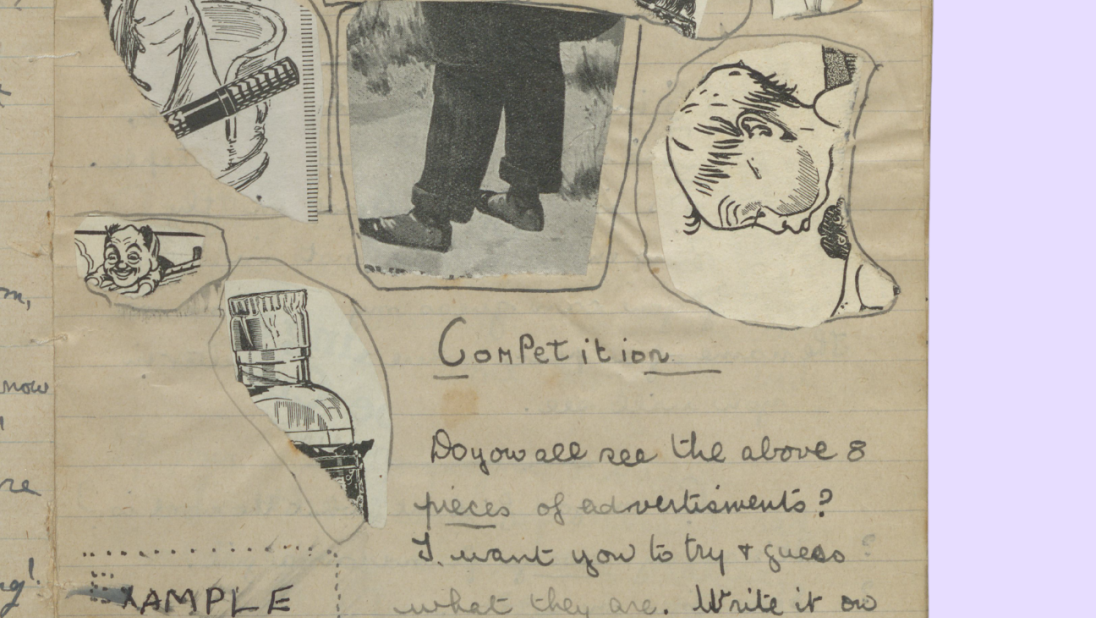 m,
now
re
Competition
Do you all see the above 8
pieces of advertisments?
I want you to try & guess
what they are. Write it on
H
XAMPLE